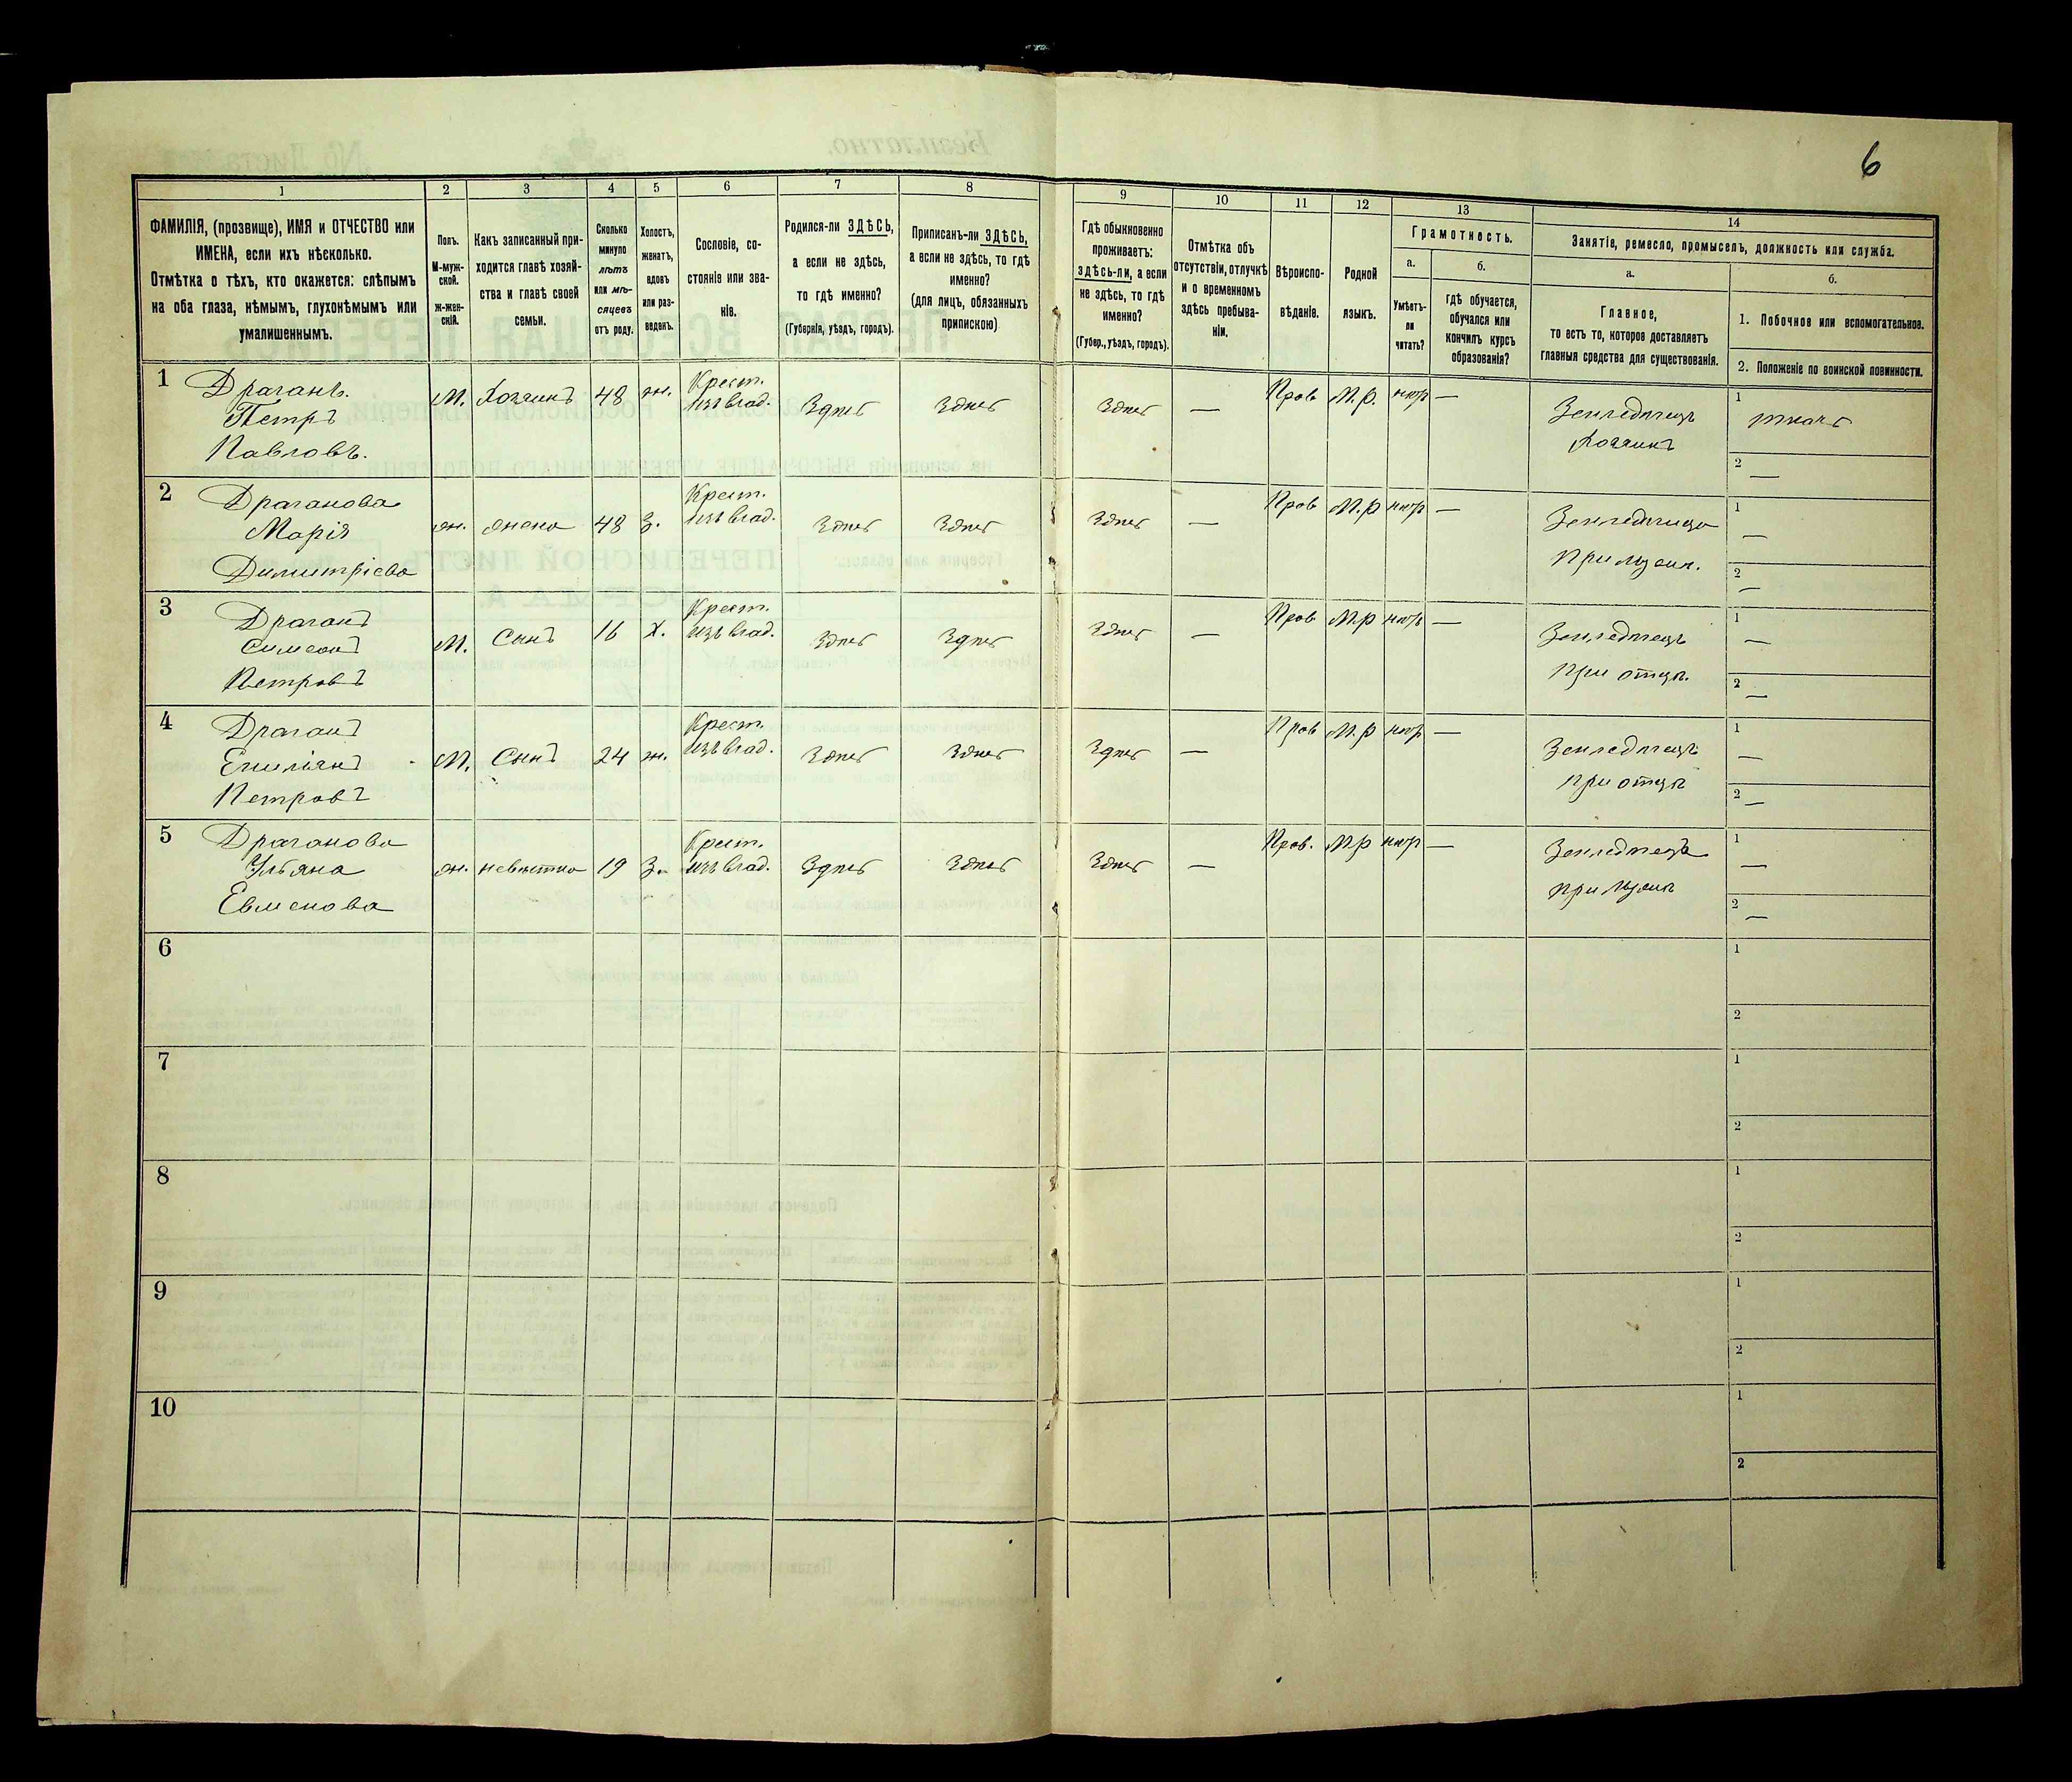 6
1 2 3 4 5 6 7 8 9 10 11 12 13 14
ФАМИЛІЯ, (прозвище), ИМЯ и ОТЧЕСТВО или
ИМЕНА, если ихъ нѣсколько.
Отмѣтка о тѣхъ, кто окажется: слѣпымъ
на оба глаза, нѣмымъ, глухонѣмымъ или
умалишеннымъ.
Полъ.
М-муж-
ской.
ж-жен-
скій.
Какъ записанный при-
ходится главѣ хозяй-
ства и главѣ своей
семьи.
Сколько
минуло
лѣтъ
или мѣ-
сяцевъ
отъ роду.
Холостъ,
женатъ,
вдовъ
или раз-
веденъ.
Сословіе, со-
стояніе или зва-
ніе.
Родился-ли ЗДѢСЬ,
а если не здѣсь,
то гдѣ именно?
(Губернія, уѣздъ, городъ).
Приписанъ-ли ЗДѢСЬ,
а если не здѣсь, то гдѣ
именно?
(для лицъ, обязанныхъ
припискою)
Гдѣ обыкновенно
проживаетъ:
здѣсь-ли, а если
не здѣсь, то гдѣ
именно?
(Губер., уѣздъ, городъ).
Отмѣтка объ
отсутствіи, отлучкѣ
и о временномъ
здѣсь пребыва-
ніи.
Вѣроиспо-
вѣданіе.
Родной
языкъ.
Грамотность.
а.
Умѣетъ-
ли
читать?
б.
Гдѣ обучается,
обучался или
кончилъ курсъ
образованія?
Занятіе, ремесло, промыселъ, должность или служба.
а.
Главное,
то есть то, которое доставляетъ
главныя средства для существованія.
б.
1. Побочное или вспомогательное.
2. Положеніе по воинской повинности.
1 Драганъ.
Петръ
Павловъ.
М. Хозяинъ 48 ж. Крест.
изъ влад.
Здѣсь Здѣсь Здѣсь — Прав М.р. нѣтъ —
Земледѣлецъ
Хозяинъ
1 ткачъ
2 —
2 Драганова
Марія
Димитріева
ж. жена 48 З. Крест.
изъ влад.
Здѣсь Здѣсь Здѣсь — Прав М.р нѣтъ —
При мужѣ.
1 —
2 —
3 Драганъ
Симеонъ
Петровъ
М. Сынъ 16 Х. Крест.
изъ влад.
Здѣсь Здѣсь Здѣсь — Прав М.р нѣтъ —
Земледѣлецъ
при отцѣ.
1 —
2 —
4 Драганъ
Емиліанъ
Петровъ
М. Сынъ 24 ж. Крест.
изъ влад.
Здѣсь Здѣсь Здѣсь — Прав М.р нѣтъ —
Земледѣлецъ
при отцѣ
1 —
2 —
5 Драганова
Ульяна
Евменова
ж. невѣстка 19 З. Крест.
изъ влад.
Здѣсь Здѣсь Здѣсь — Прав. М.р нѣтъ —
при мужѣ
1 —
2 —
6
1
2
7
1
2
8
1
2
9
1
2
10
1
2